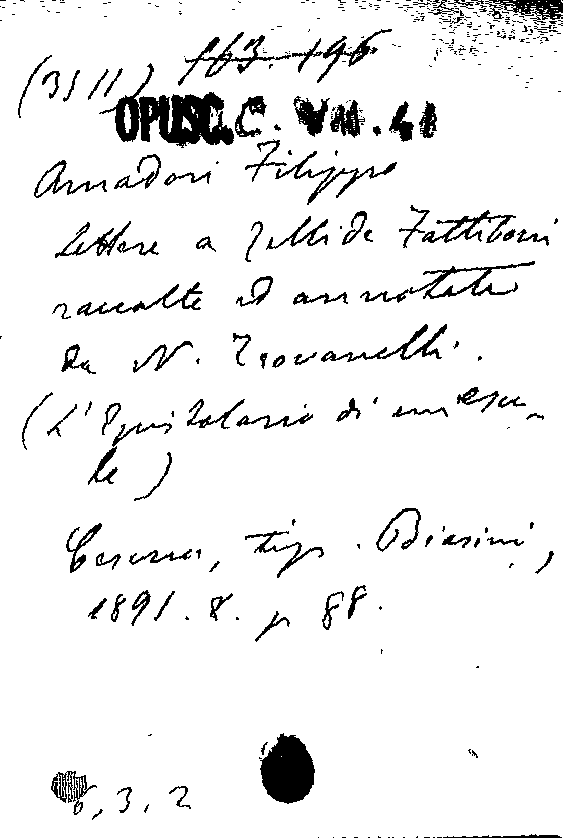 (3511) 163.196
OPUSC.C. VIII.41
Amadori Filippo
Lettere a Zellide Fattiboni
raccolte ed annotate
da N. Trovanelli.
(L'Epistolario di un esu-
le)
Cesena, tip. Biasini,
1891. 8. p 88.
6,3,2